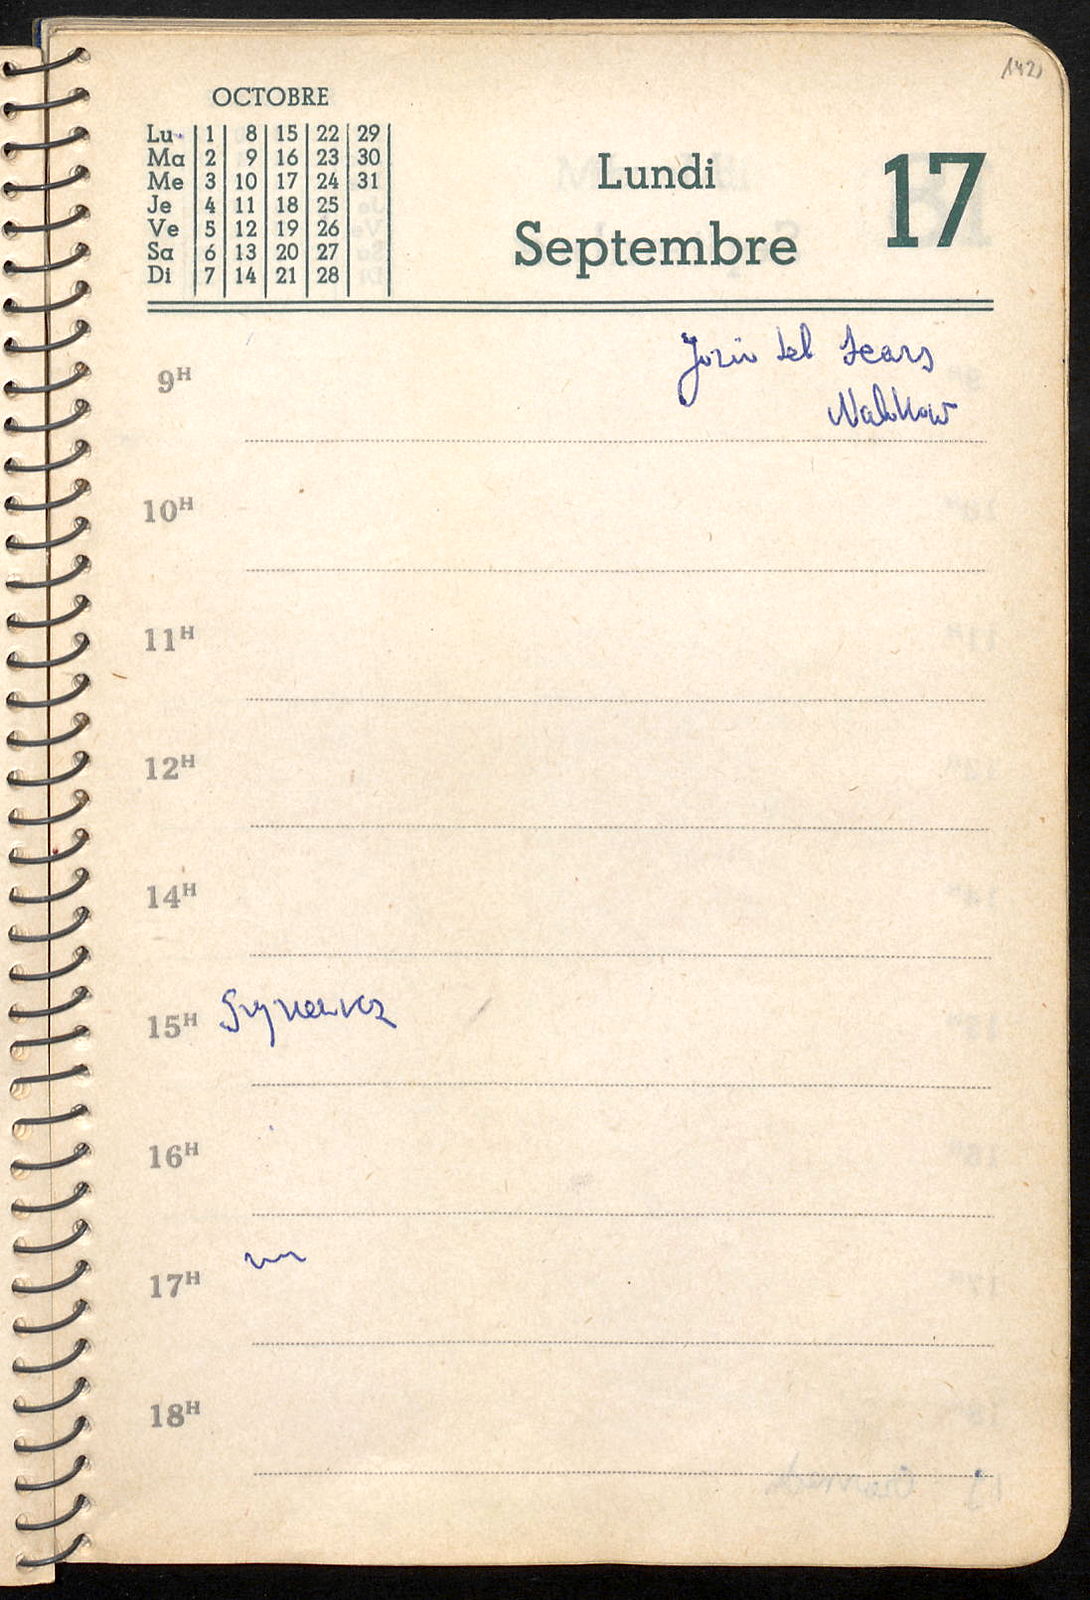 142)
OCTOBRE
Lu 1 8 15 22 29
Ma 2 9 16 23 30
Me 3 10 17 24 31
Je 4 11 18 25
Ve 5 12 19 26
Sa 6 13 20 27
Di 7 14 21 28
Lundi 17
Septembre
Józio tel
9H
10H
11H
12H
14H
15H
16H
17H
18H